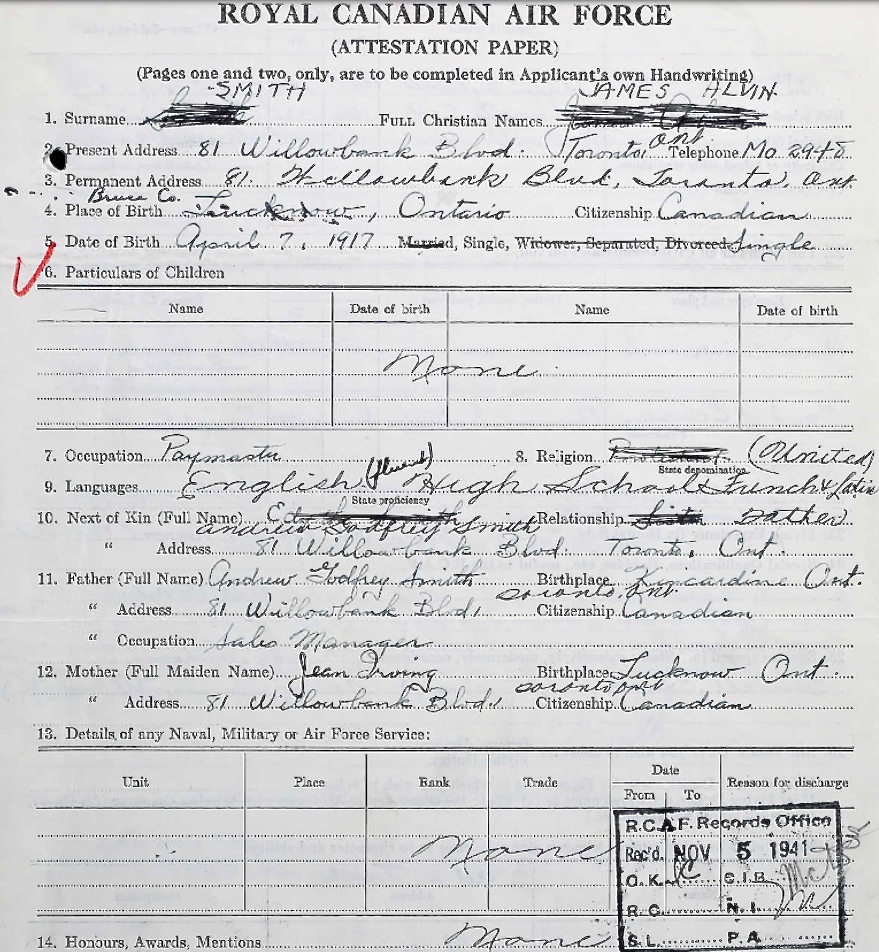 ROYAL CANADIAN AIR FORCE
(ATTESTATION PAPER)
(Pages one and two, only, are to be completed in Applicant's own Handwriting)
SMITH JAMES ALVIN
1. Surname FULL Christian Names
2. Present Address 81 Willowbank Blvd. Toronto, Ont Telephone Mo 2948
3. Permanent Address 81. Willowbank Blvd, Toronto, Ont.
Bruce Co.
4. Place of Birth Lucknow, Ontario Citizenship Canadian
5. Date of Birth April 7, 1917 Married, Single, Widower, Separated, Divorced Single
6. Particulars of Children
Name Date of birth Name Date of birth
None
7. Occupation Paymaster 8. Religion (United)
State denomination
9. Languages English (fluent) High School French & Latin
State proficiency
10. Next of Kin (Full Name) Andrew Godfrey Smith Relationship Sister Father
" Address 81 Willowbank Blvd. Toronto, Ont.
11. Father (Full Name) Andrew Godfrey Smith Birthplace Kincardine Ont.
Toronto, Ont.
" Address 81 Willowbank Blvd, Citizenship Canadian
" Occupation Sales Manager
12. Mother (Full Maiden Name) Jean Irving Birthplace Lucknow Ont.
Toronto Ont
" Address 81 Willowbank Blvd. Citizenship Canadian
13. Details of any Naval, Military or Air Force Service:
Unit Place Rank Trade Date Reason for discharge
From To
None
R.C.A.F. Records Office
Rec'd. NOV 5 1941
O.K. C.I.B.
R.C. N.I.
S.L. P.A.
14. Honours, Awards, Mentions None